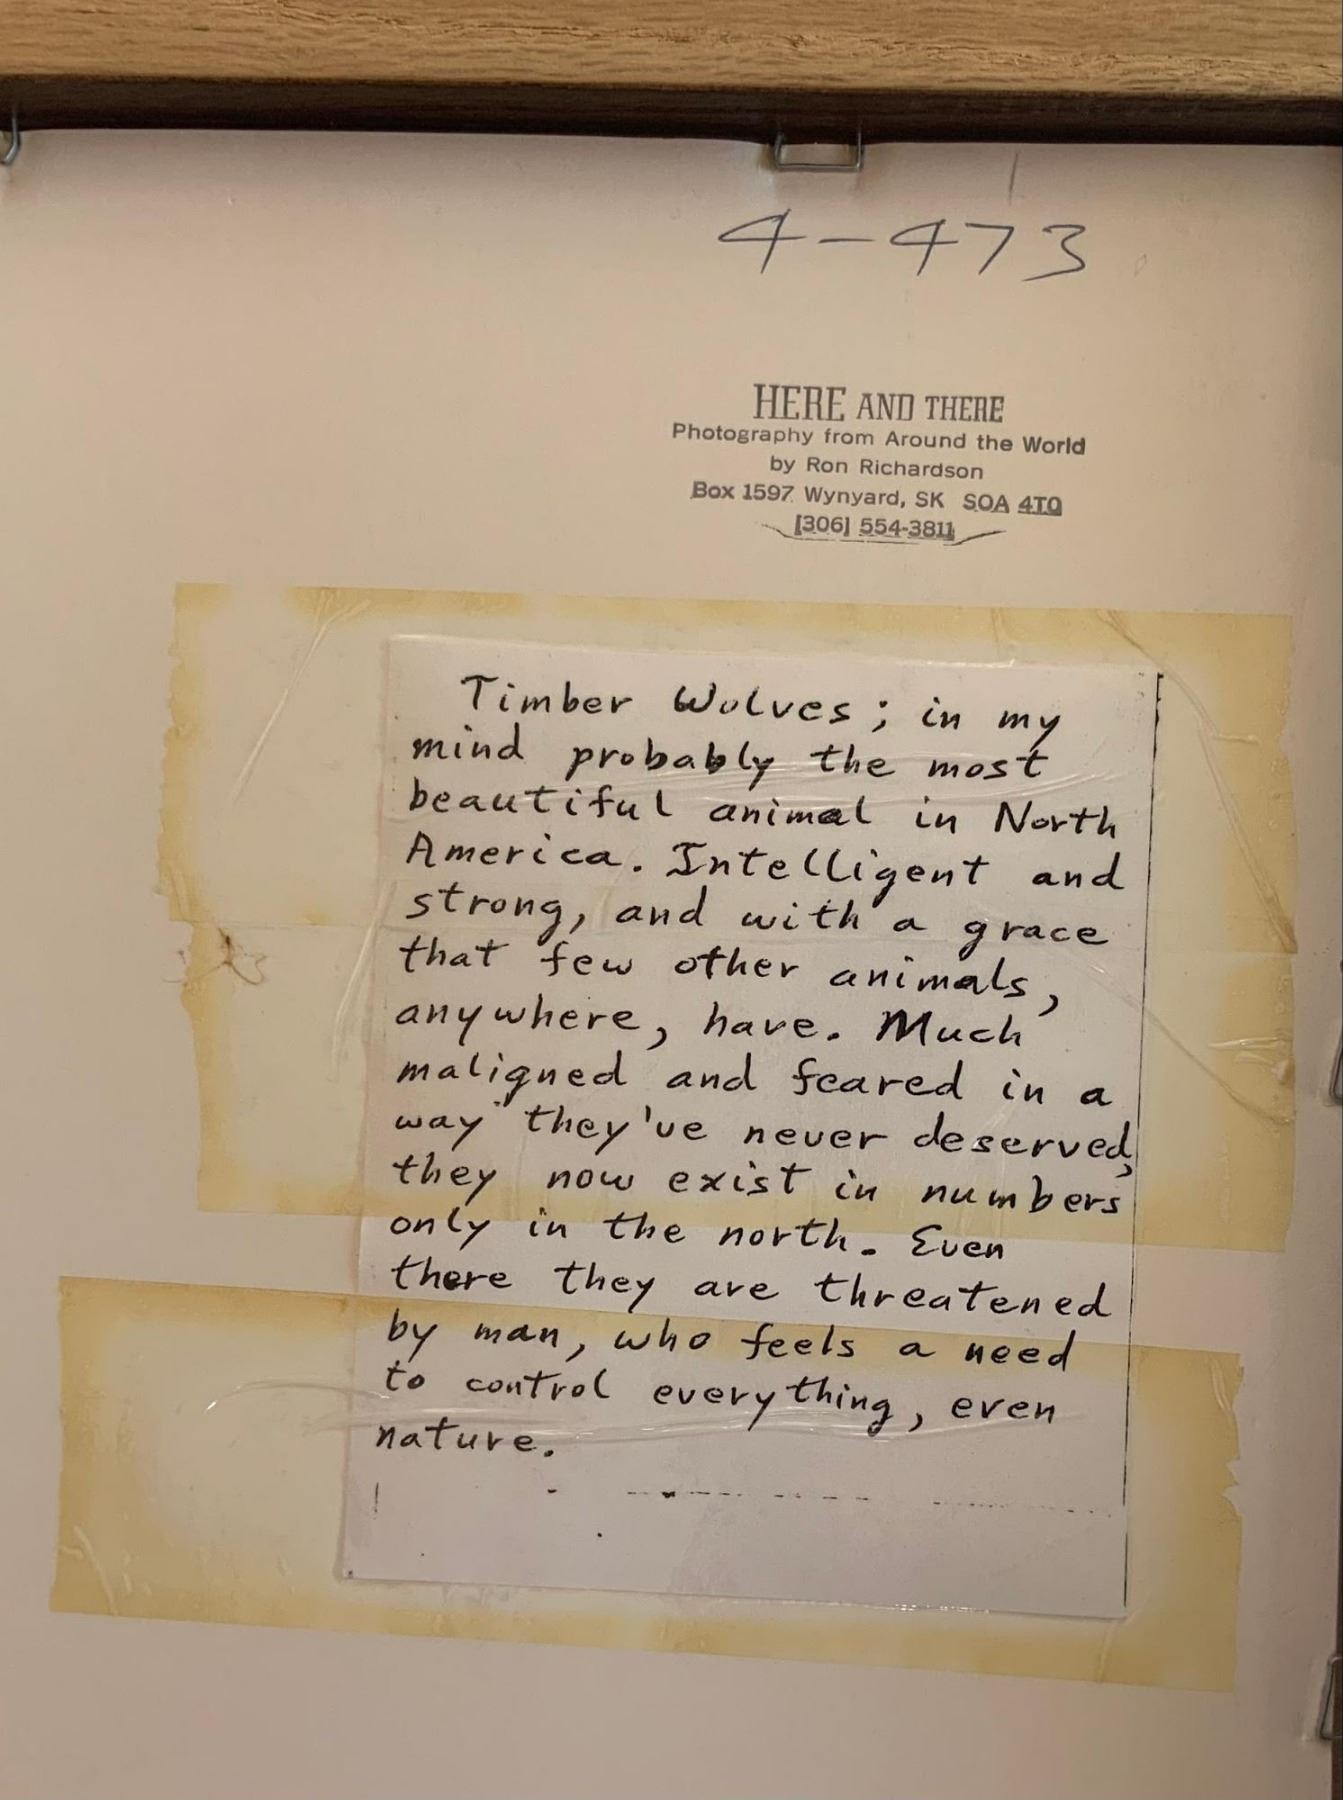 4-473
HERE AND THERE
Photography from Around the World
by Ron Richardson
Box 1597 Wynyard, SK S0A 4T0
[306] 554-3811
Timber Wolves; in my
mind probably the most
beautiful animal in North
America. Intelligent and
strong, and with a grace
that few other animals,
anywhere, have. Much
maligned and feared in a
way they've never deserved,
they now exist in numbers
only in the north. Even
there they are threatened
by man, who feels a need
to control everything, even
nature.